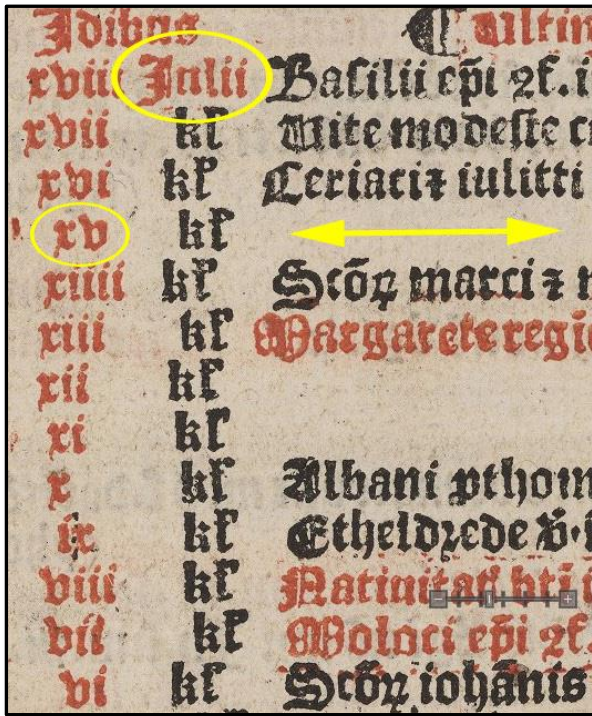 Idibus ¶ Ultim
xviii Julii Basilii epi ⁊ ɔf. i
xvii kł Uite modeste c
xvi kł Ceriaci ⁊ iulitti
xv kł
xiiii kł Scōꝝ marci ⁊
xiii kł Margarete regi
xii kł
xi kł
x kł Albani ꝓthom
ix kł Etheldrede v̄. i
viii kł Natiuitas bti i
vii kł Moloci epi ɔf.
vi kł Scōꝝ iohānis